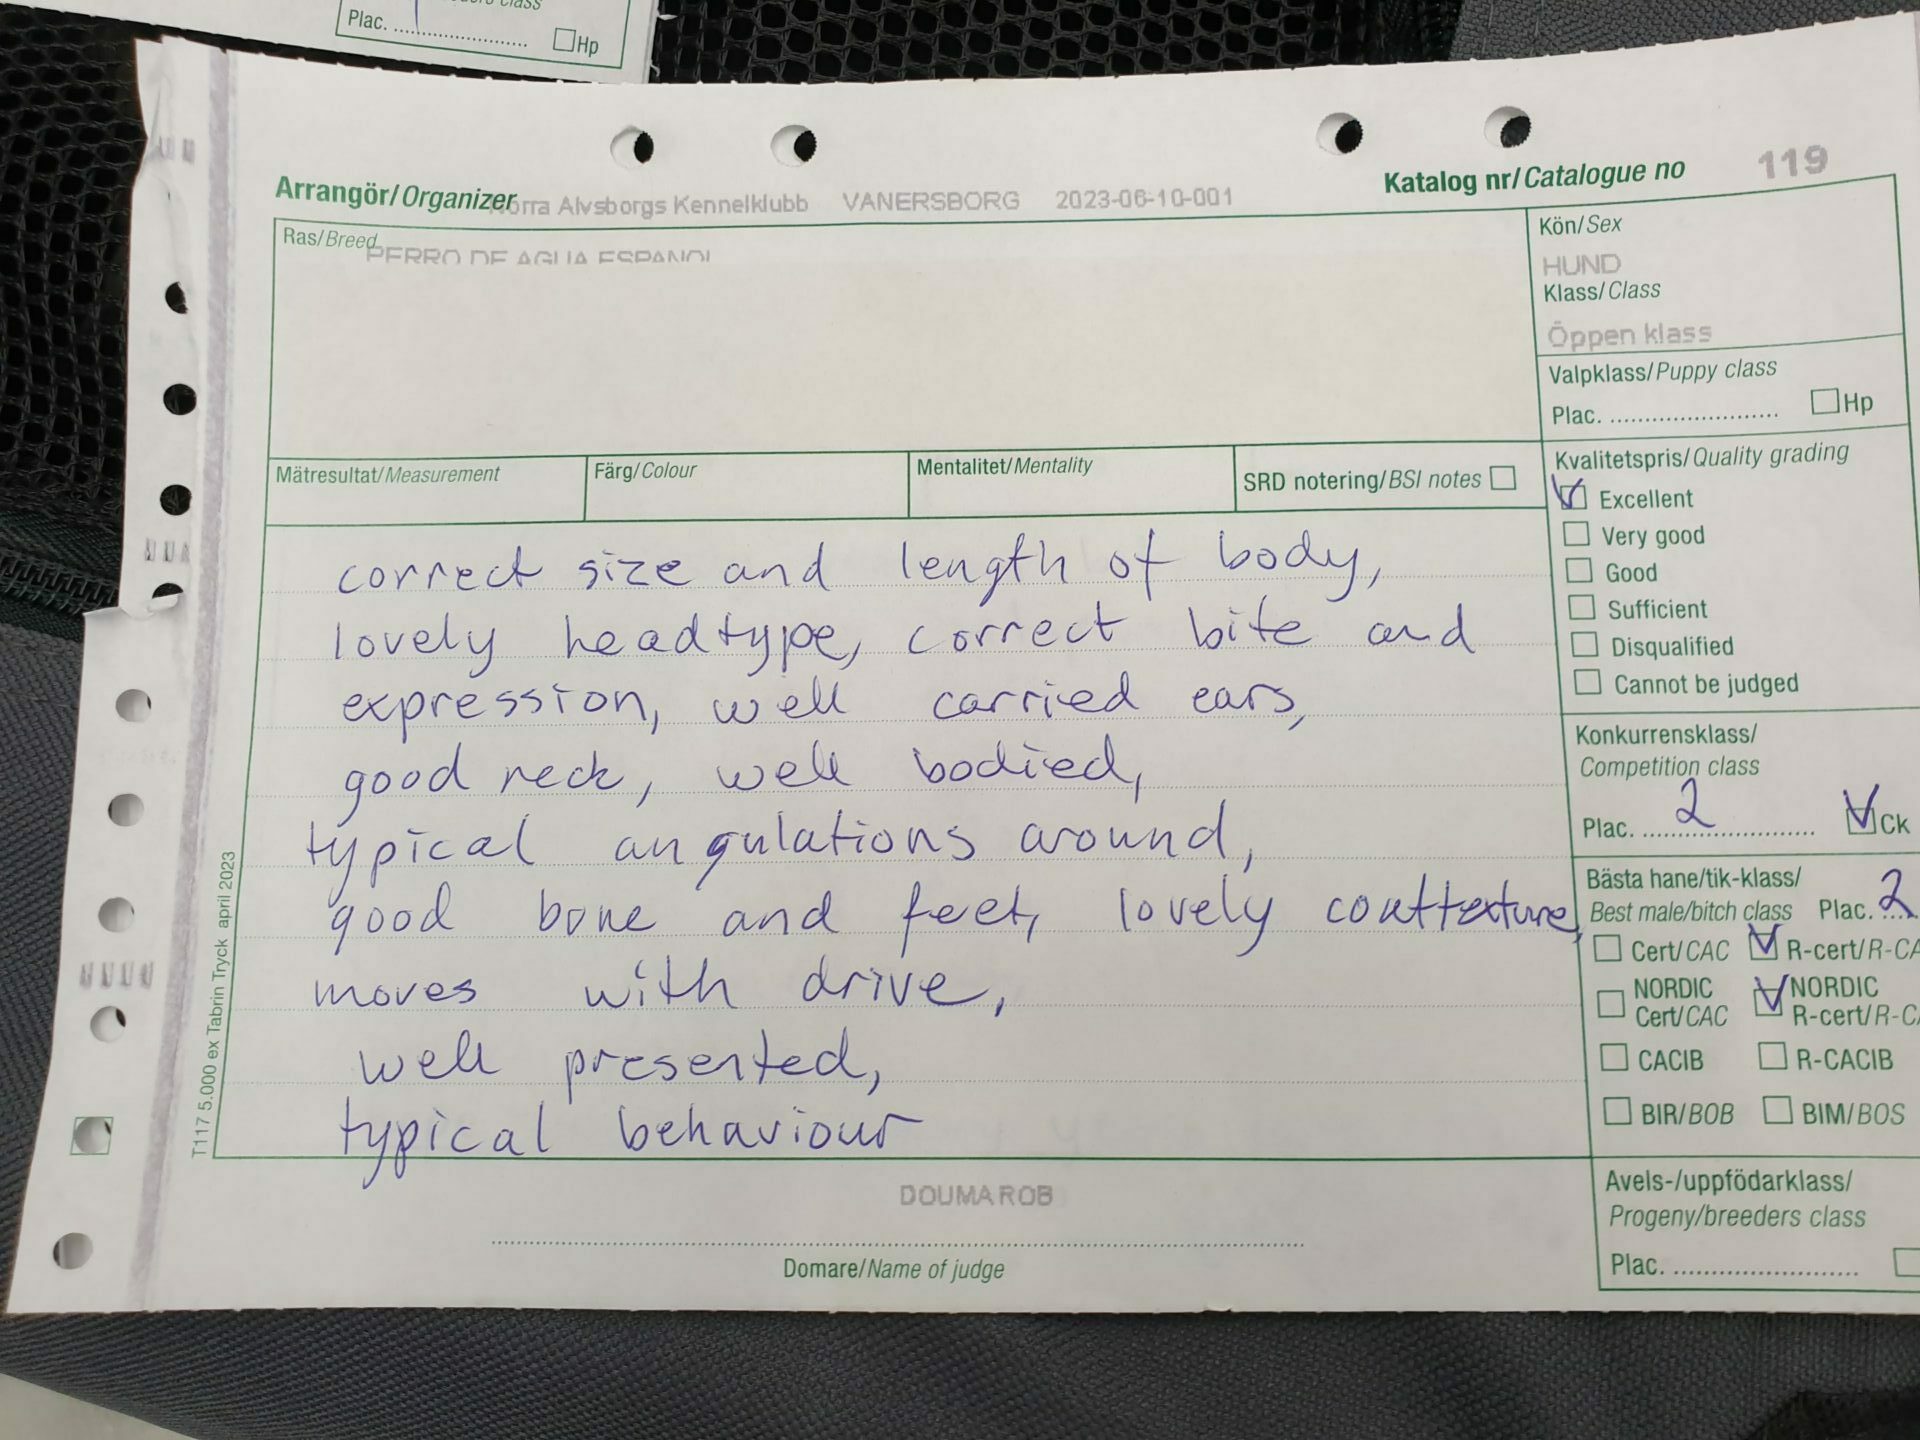 Plac. ........................ Hp
Arrangör/Organizer Norra Alvsborgs Kennelklubb VANERSBORG 2023-06-10-001
Katalog nr/Catalogue no 119
Ras/Breed PERRO DE AGUA ESPANOL
Kön/Sex
HUND
Klass/Class
Öppen klass
Valpklass/Puppy class
Plac. ........................ Hp
Mätresultat/Measurement
Färg/Colour
Mentalitet/Mentality
SRD notering/BSI notes
Kvalitetspris/Quality grading
Excellent
Very good
Good
Sufficient
Disqualified
Cannot be judged
correct size and length of body,
lovely headtype, correct bite and
expression, well carried ears,
good neck, well bodied,
typical angulations around,
good bone and feet, lovely coattexture,
moves with drive,
well presented,
typical behaviour
Konkurrensklass/
Competition class
Plac. 2 Ck
Bästa hane/tik-klass/
Best male/bitch class Plac. 2
Cert/CAC R-cert/R-CA
NORDIC Cert/CAC NORDIC R-cert/R-CA
CACIB R-CACIB
BIR/BOB BIM/BOS
Avels-/uppfödarklass/
Progeny/breeders class
Plac. ........................
DOUMA ROB
Domare/Name of judge
T117 5.000 ex Tabrin Tryck april 2023